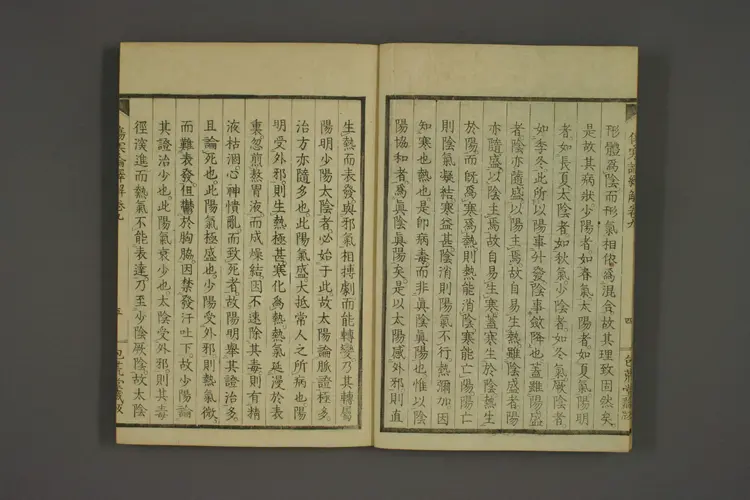 形體爲陰而形氣相依爲混合故其理致固然矣
是故其病狀少陽者如春氣太陽者如夏氣陽明
者如長夏太陰者如秋氣少陰者如冬氣厥陰者
如季冬此所以陽事外發陰事斂降也蓋雖陽盛
者陰亦隨盛以陽主焉故自易生熱雖陰盛者陽
亦隨盛以陰主焉故自易生寒蓋寒生於陰熱生
於陽而既爲寒爲熱則熱能消陰寒能亡陽陽亡
則陰氣凝結寒益甚陰消則陽氣不行熱彌加因
知寒也熱也是卽病毒而非眞陰眞陽也惟以陰
陽協和者爲眞陰眞陽矣是以太陽感外邪則直
四
生熱而表發與邪氣相搏劇而能轉變乃其轉屬
陽明少陽太陰者必始于此故太陽論脈證極多
治方亦隨多也此陽氣盛大抵常人之所病也陽
明受外邪則生熱極甚寒化爲熱熱氣延漫於表
裏忽煎熬胃液而成燥結因不速除其毒則有精
液枯涸心神憒亂而致死者故陽明舉其證治多
且論死也此陽氣極盛也少陽受外邪則熱氣微
而難表發但鬱於胸脇因禁發汗吐下故少陽論
其證治少也此陽氣衰少也太陰受外邪則其毒
徑演進而熱氣不能表達乃至少陰厥陰故太陰
傷寒論繹解卷九
五